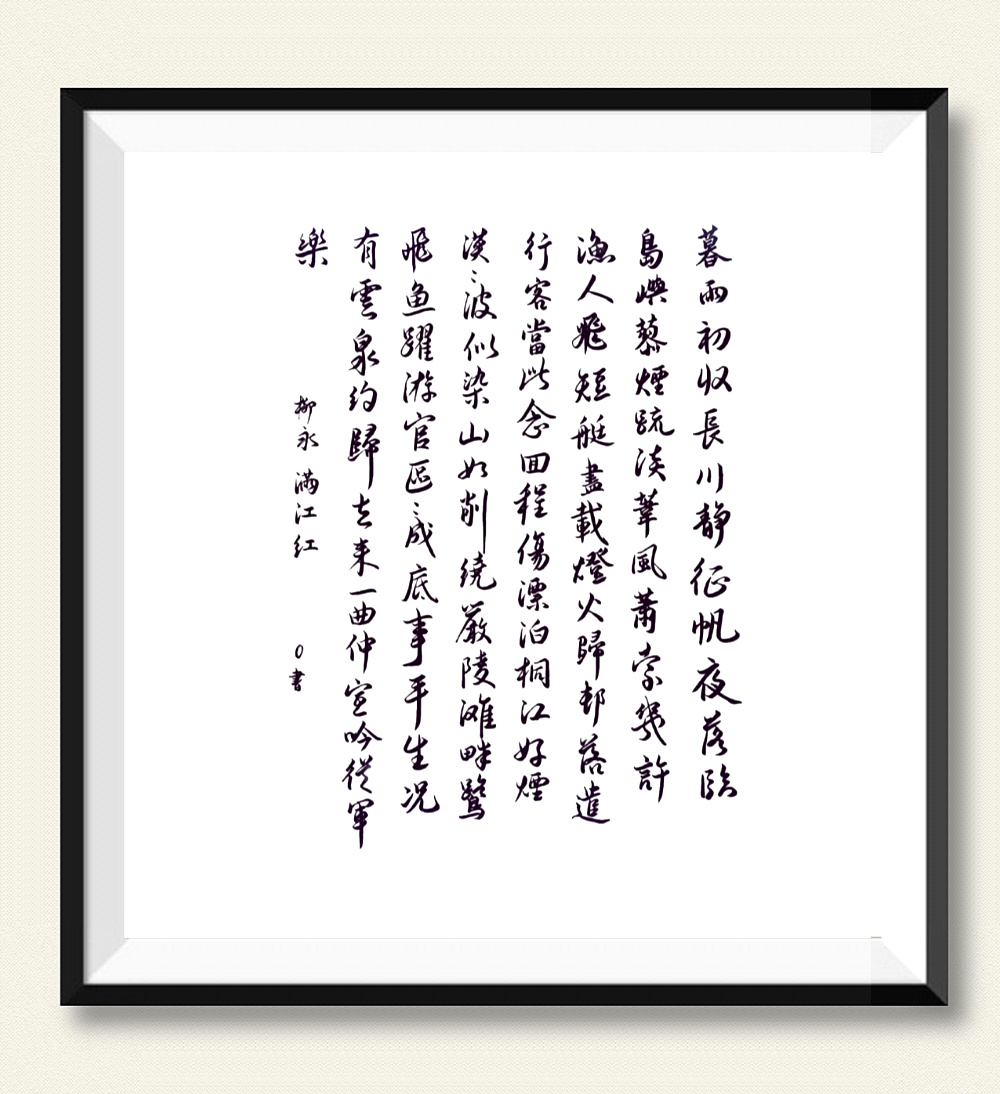 暮雨初収長川静征帆夜落臨
島嶼蓼煙疏淡葦風蕭索幾許
漁人飛短艇盡載燈火歸邨落遣
行客當此念回程傷漂泊桐江好煙
漠〻波似染山如削繞嚴陵灘畔鷺
飛魚躍游官區〻成底事平生况
有雲泉約歸去来一曲仲宣吟從軍
樂
柳永 满江红 0書